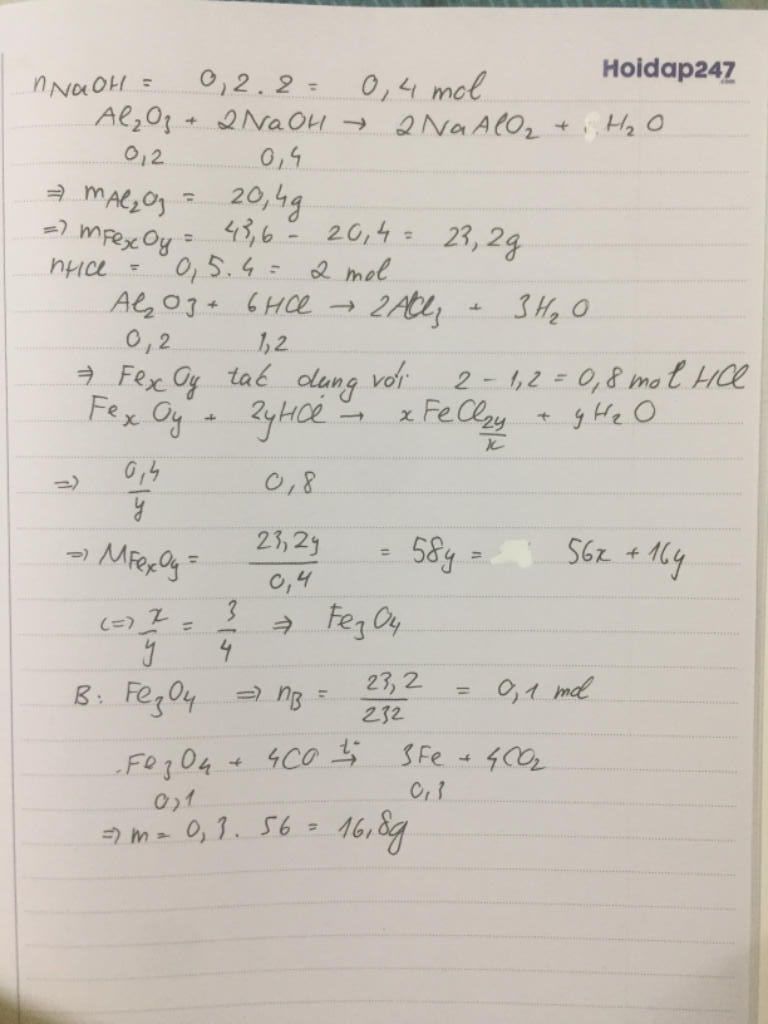 Hoidap247
.com
nNaOH = 0,2.2 = 0,4 mol
Al2O3 + 2NaOH → 2NaAlO2 + H2O
0,2 0,4
⇒ mAl2O3 = 20,4g
⇒ mFexOy = 43,6 - 20,4 = 23,2g
nHCl = 0,5.4 = 2 mol
Al2O3 + 6HCl → 2AlCl3 + 3H2O
0,2 1,2
⇒ FexOy tác dụng với 2 - 1,2 = 0,8 mol HCl
FexOy + 2yHCl → xFeCl2y/x + yH2O
⇒ 0,4/y 0,8
⇒ MFexOy = 23,2y/0,4 = 58y = 56x + 16y
(=) x/y = 3/4 ⇒ Fe3O4
B: Fe3O4 ⇒ nB = 23,2/232 = 0,1 mol
Fe3O4 + 4CO t°→ 3Fe + 4CO2
0,1 0,3
⇒ m = 0,3.56 = 16,8g